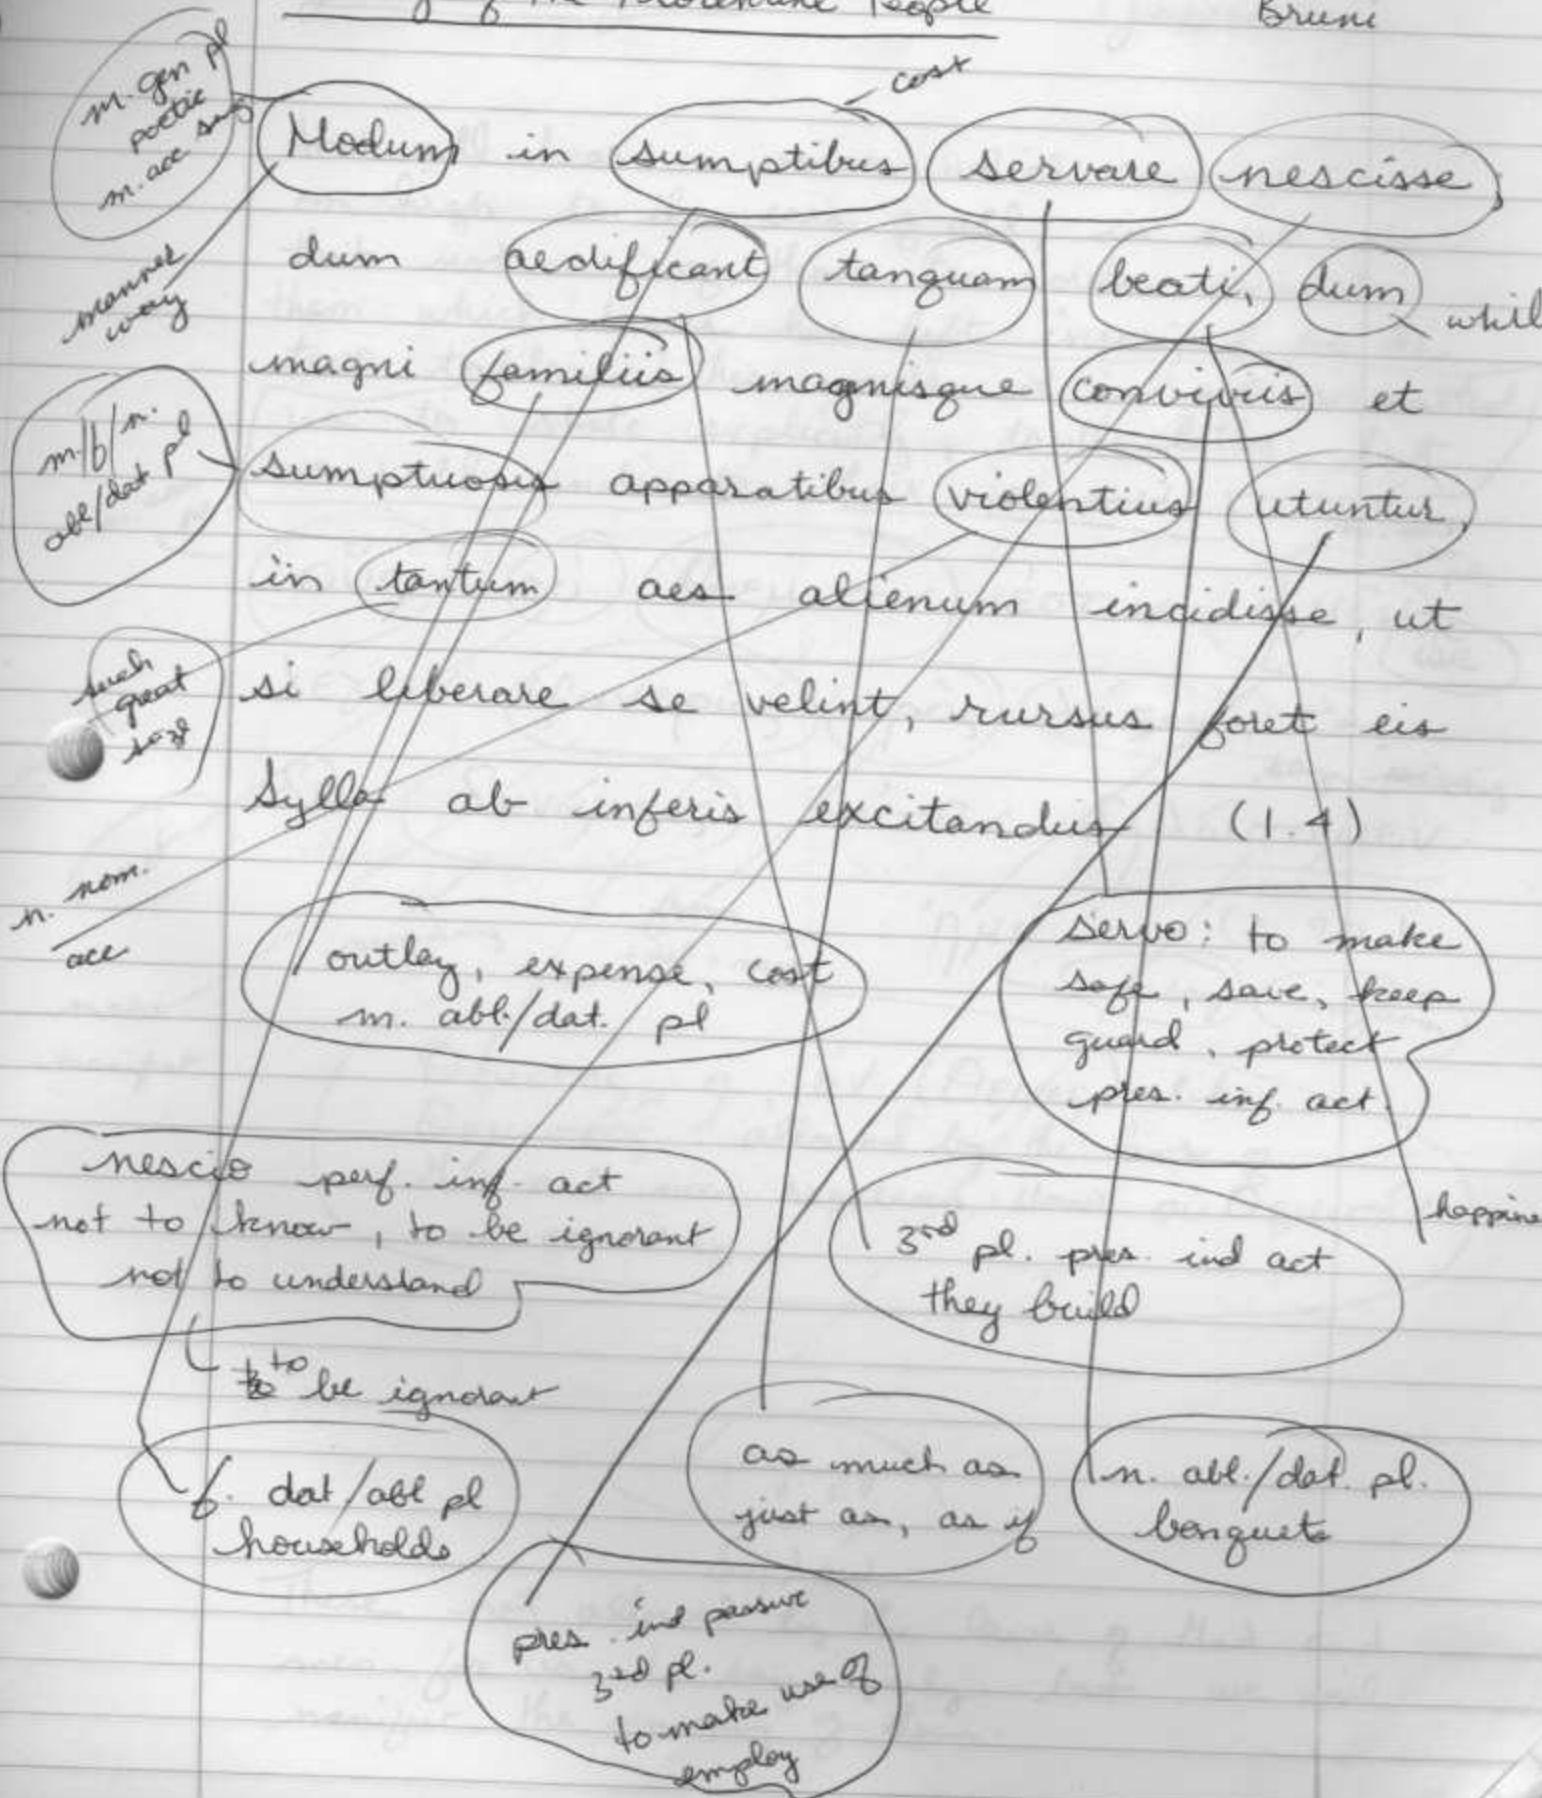 of the Florentine People
Bruni
cost
m. gen pl
poetic
m. acc sing
Modum in sumptibus servare nescisse,
manner
way
dum aedificant tanquam beati, dum
whil
magni familiis magnisque conviviis et
m/f/n.
abl/dat pl
sumptuosis apparatibus violentius utuntur,
in tantum aes alienum incidisse, ut
such
great
size
si liberare se velint, rursus foret eis
Sylla ab inferis excitandus (1.4)
n. nom.
acc
outlay, expense, cost
m. abl./dat. pl
servo: to make
safe, save, keep
guard, protect
pres. inf. act.
nescio perf. inf. act
not to know, to be ignorant
not to understand
to be ignorant
3rd pl. pres. ind act
they build
happine
f. dat/abl pl
households
as much as
just as, as if
n. abl./dat. pl.
banquets
pres. ind passive
3rd pl.
to make use of
employ